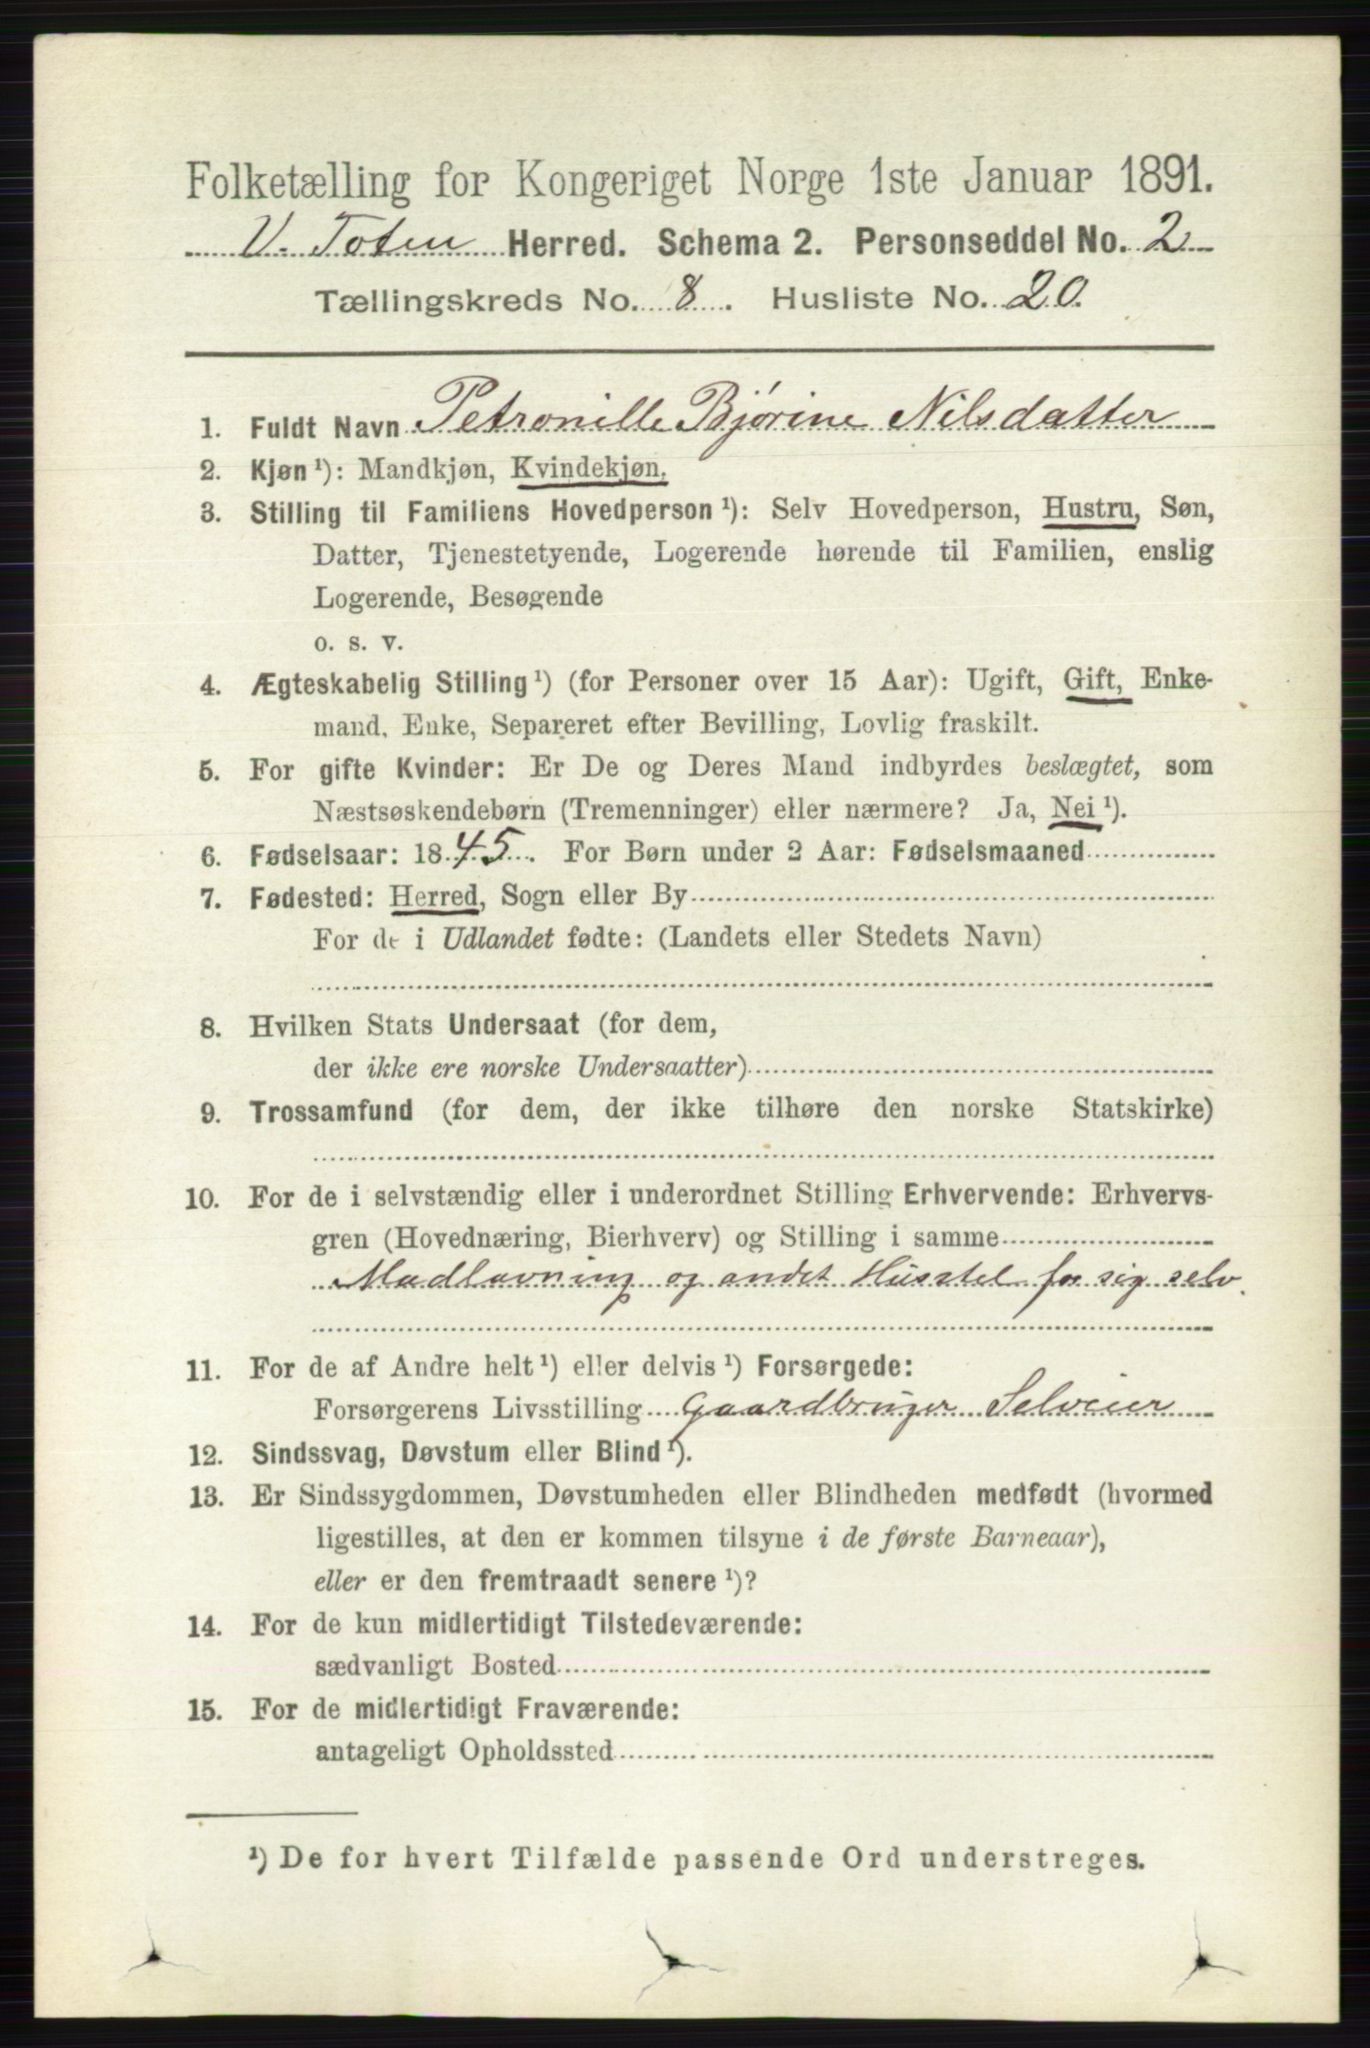 Folketælling for Kongeriget Norge 1ste Januar 1891.
V. Toten Herred. Schema 2. Personseddel No. 2
Tællingskreds No. 8. Husliste No. 20.
1. Fuldt Navn Petronille Bjørine Nilsdatter
2. Kjøn ¹): Mandkjøn, Kvindekjøn.
3. Stilling til Familiens Hovedperson ¹): Selv Hovedperson, Hustru, Søn,
Datter, Tjenestetyende, Logerende hørende til Familien, enslig
Logerende, Besøgende
o. s. v.
4. Ægteskabelig Stilling ¹) (for Personer over 15 Aar): Ugift, Gift, Enke-
mand, Enke, Separeret efter Bevilling, Lovlig fraskilt.
5. For gifte Kvinder: Er De og Deres Mand indbyrdes beslægtet, som
Næstsøskendebørn (Tremenninger) eller nærmere? Ja, Nei ¹).
6. Fødselsaar: 1845. For Børn under 2 Aar: Fødselsmaaned
7. Fødested: Herred, Sogn eller By
For de i Udlandet fødte: (Landets eller Stedets Navn)
8. Hvilken Stats Undersaat (for dem,
der ikke ere norske Undersaatter)
9. Trossamfund (for dem, der ikke tilhøre den norske Statskirke)
10. For de i selvstændig eller i underordnet Stilling Erhvervende: Erhvervs-
gren (Hovednæring, Bierhverv) og Stilling i samme
Madlavning og andet Husstel for sig selv.
11. For de af Andre helt ¹) eller delvis ¹) Forsørgede:
Forsørgerens Livsstilling Gaardbruger Selveier
12. Sindssvag, Døvstum eller Blind ¹).
13. Er Sindssygdommen, Døvstumheden eller Blindheden medfødt (hvormed
ligestilles, at den er kommen tilsyne i de første Barneaar),
eller er den fremtraadt senere ¹)?
14. For de kun midlertidigt Tilstedeværende:
sædvanligt Bosted
15. For de midlertidigt Fraværende:
antageligt Opholdssted
¹) De for hvert Tilfælde passende Ord understreges.